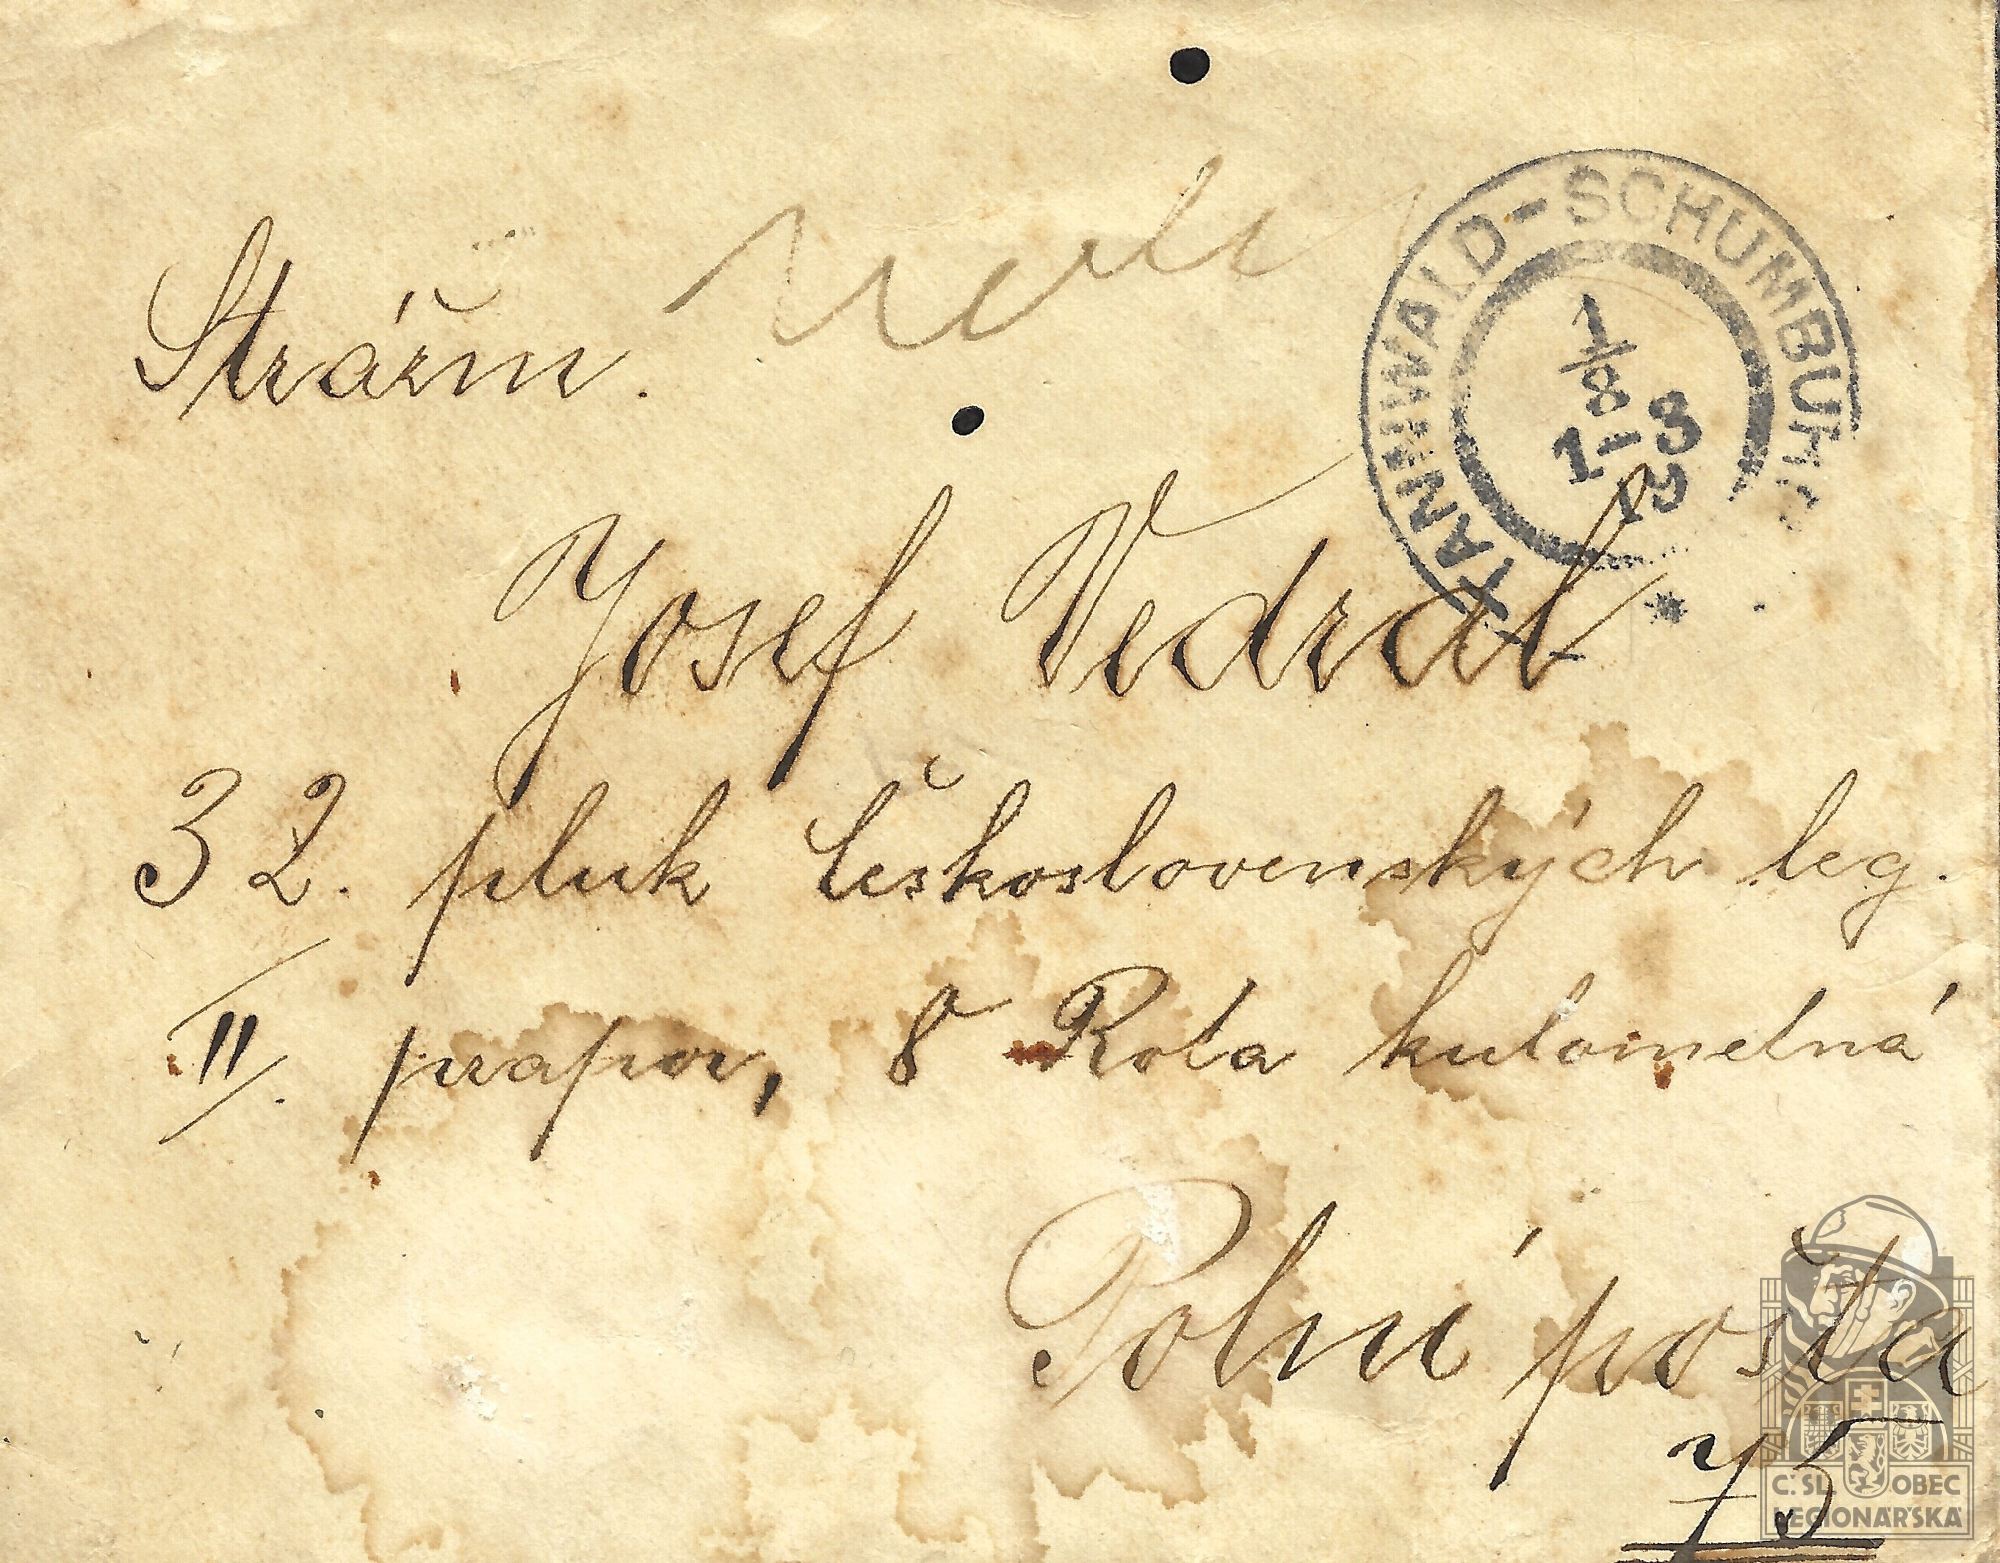 Strážm.
TANNWALD-SCHUMBURG
1/8
1-3
19
Josef Vedral
32. pluk Československých leg.
II. prapor, 8 Rota kulometná
Polní pošta
75
Č. SL. OBEC
LEGIONÁŘSKÁ